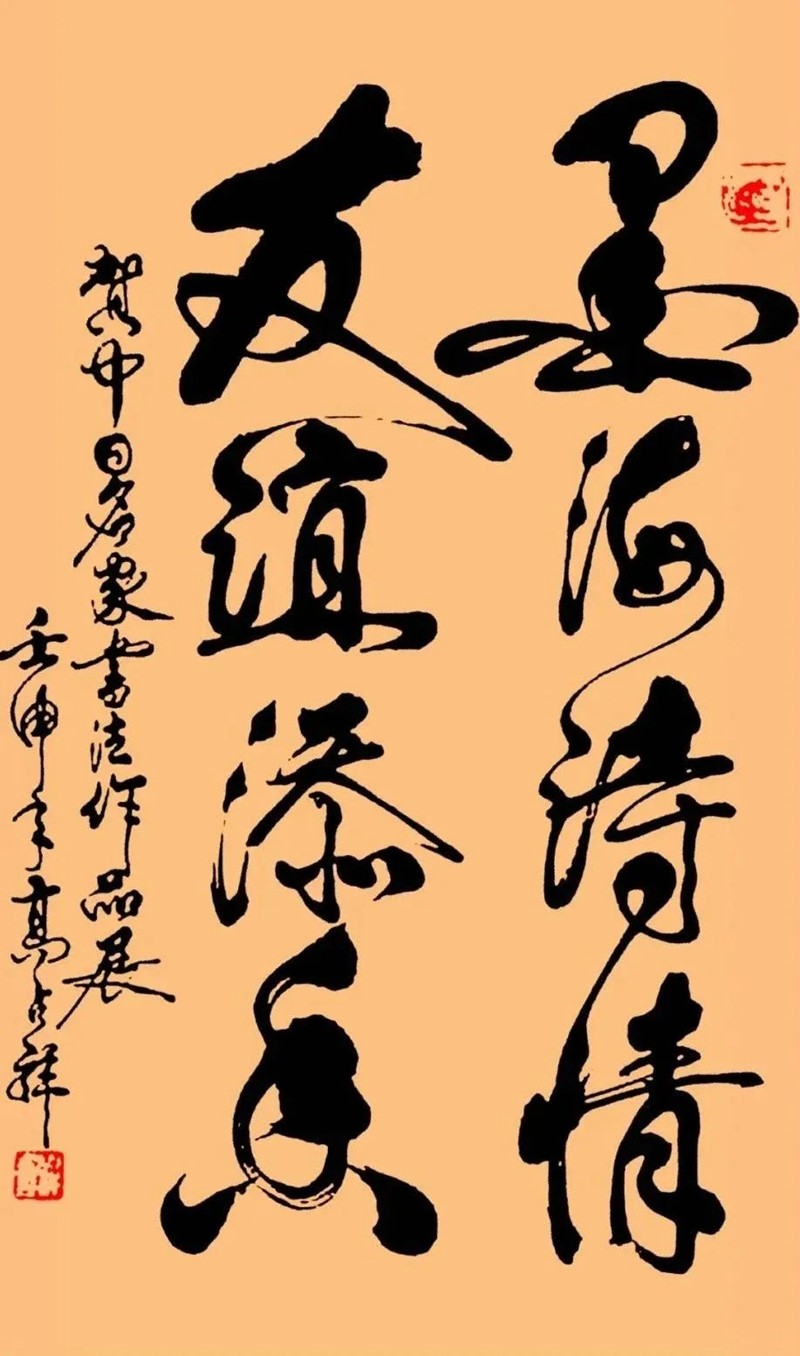 墨海诗情
友谊添香
贺中日名家书法作品展
壬申年高占祥